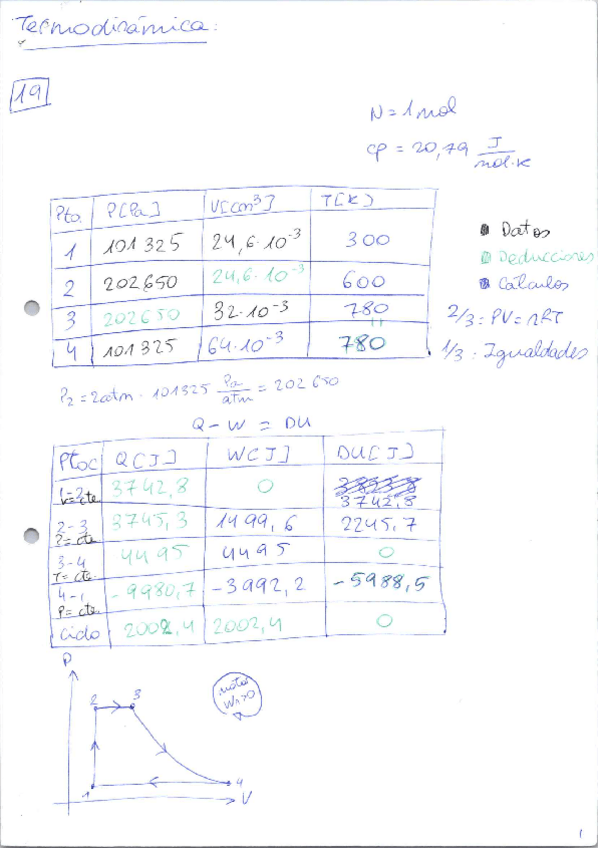 Termodinámica:
19
N = 1 mol
cp = 20,79 J/mol·K
Pto. P[Pa] V[m³] T[K]
1 101325 24,6·10⁻³ 300
2 202650 24,6·10⁻³ 600
3 202650 32·10⁻³ 780
4 101325 64·10⁻³ 780
Datos
Deducciones
Cálculos
2/3: PV = nRT
1/3: Igualdades
P₂ = 2atm · 101325 Pa/atm = 202650
Q - W = DU
Ptoc Q[J] W[J] DU[J]
1-2 V=cte 3742,8 0 3742,8
2-3 P=cte. 3745,3 1499,6 2245,7
3-4 T=cte. 4495 4495 0
4-1 P=cte. -9980,7 -3992,2 -5988,5
Ciclo 2002,4 2002,4 0
P
2 3
motor
Wn>0
1 4
V
1